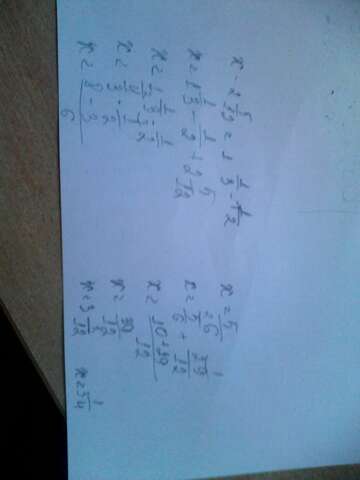 x - 2 5/12 = 1 1/3 - 1/2
x = 1 1/3 - 1/2 + 2 5/12
x = 1 1/3 - 1/2
x = 4/3 - 1/2
x = 8-3/6
x = 5/6
x = 5/6 + 29/12
x = 10+29/12
x = 39/12
x = 3 3/12 x = 3 1/4